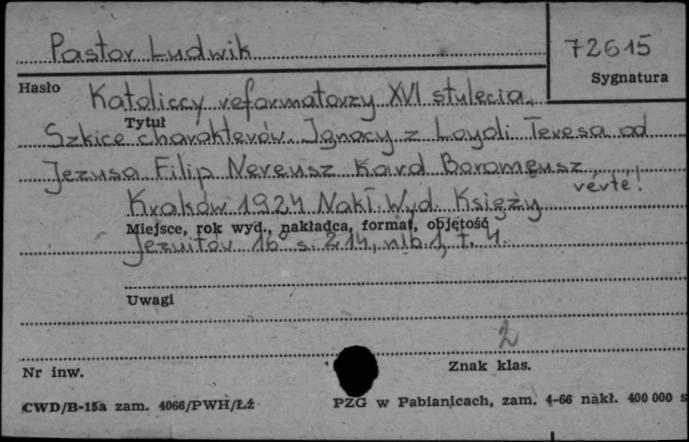 Pastor Ludwik
72615
Hasło
Sygnatura
Katoliccy reformatorzy XVI stulecia.
Tytuł
Szkice charakterów. Ignacy z Loyoli Teresa od
Jezusa Filip Nereusz Kard Boromeusz
verte!
Kraków 1924 Nakł. Wyd. Księży
Miejsce, rok wyd., nakładca, format, objętość
Jezuitów 16° s. 214, nlb. 1, t. 4.
Uwagi
2
Nr inw.
Znak klas.
CWD/B-15a zam. 4066/PWH/Łź
PZG w Pabianicach, zam. 4-66 nakł. 400 000 s